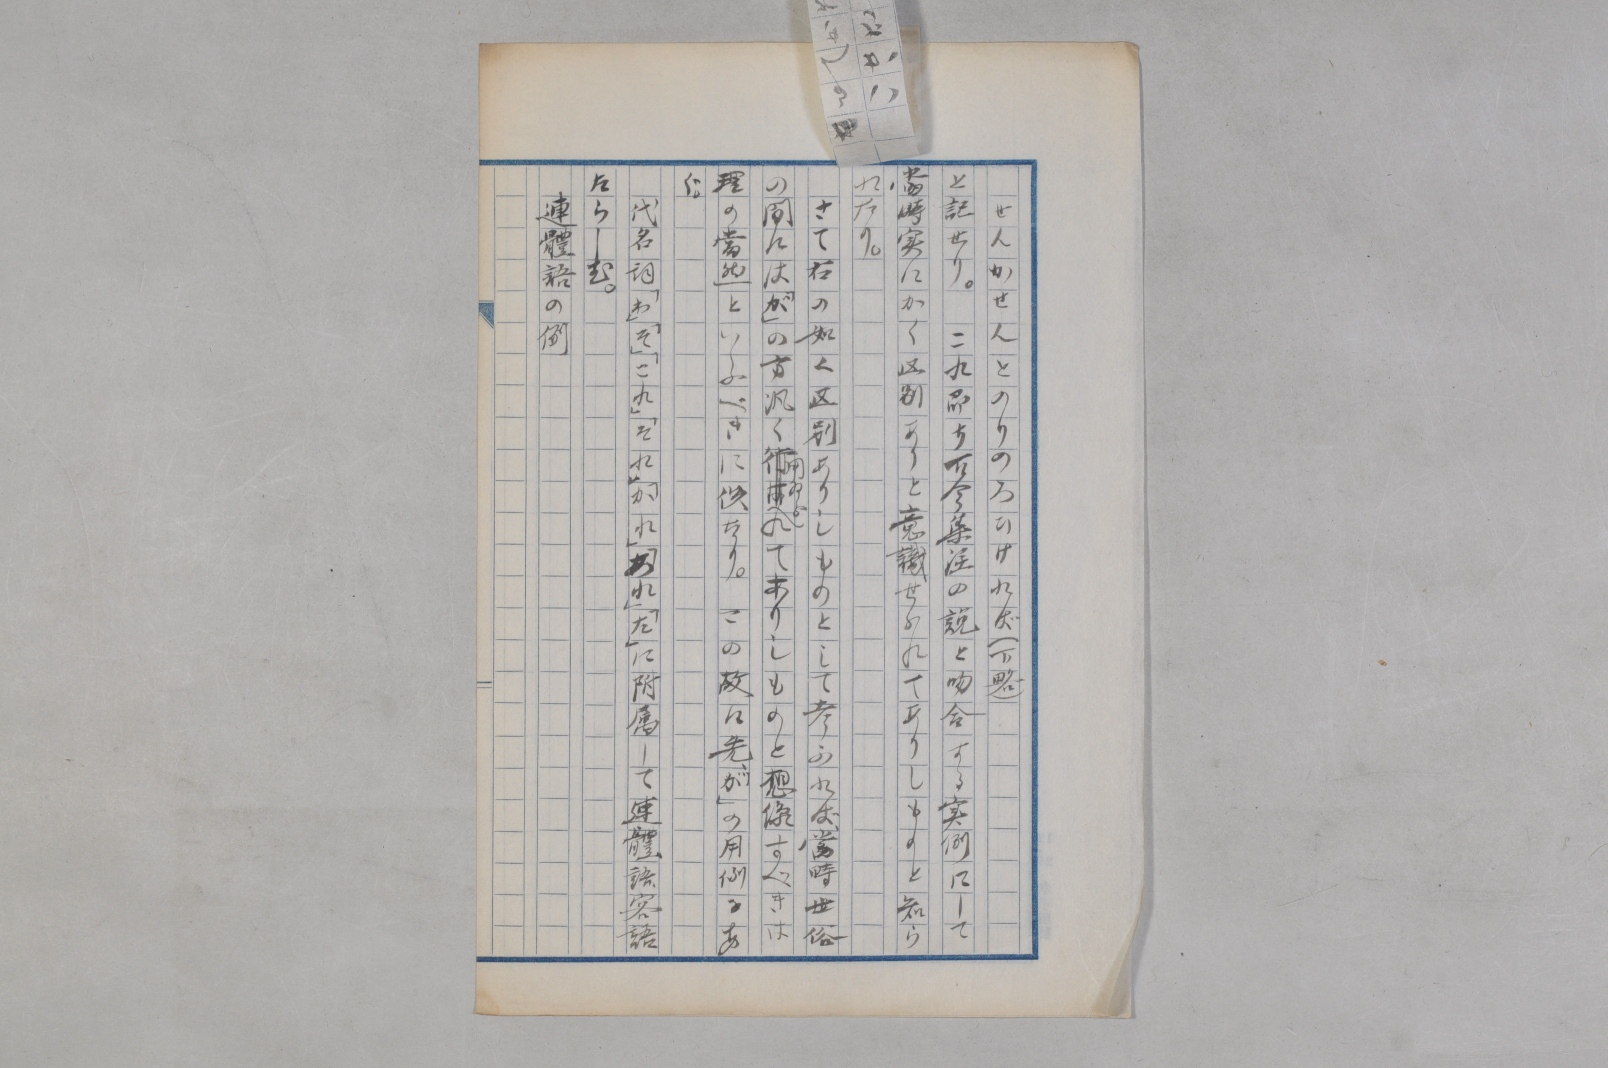 せんかせんとのりのろひければ（下略）
と記せり。これ即ち古今集注の説と吻合する実例にして
當時実にかく区別ありと意識せられてありしものと知ら
れたり。
さて右の如く区別ありしものとして考ふれば當時世俗
の間には「が」の方汎く用ゐられて来りしものと想像すべきは
理の當然といふべきに似たり。この故に先「が」の用例をあ
ぐ。
代名詞「わ」「そ」「これ」「それ」「かれ」「われ」「た」に附属して連體語客語
たらしむ。
連體語の例